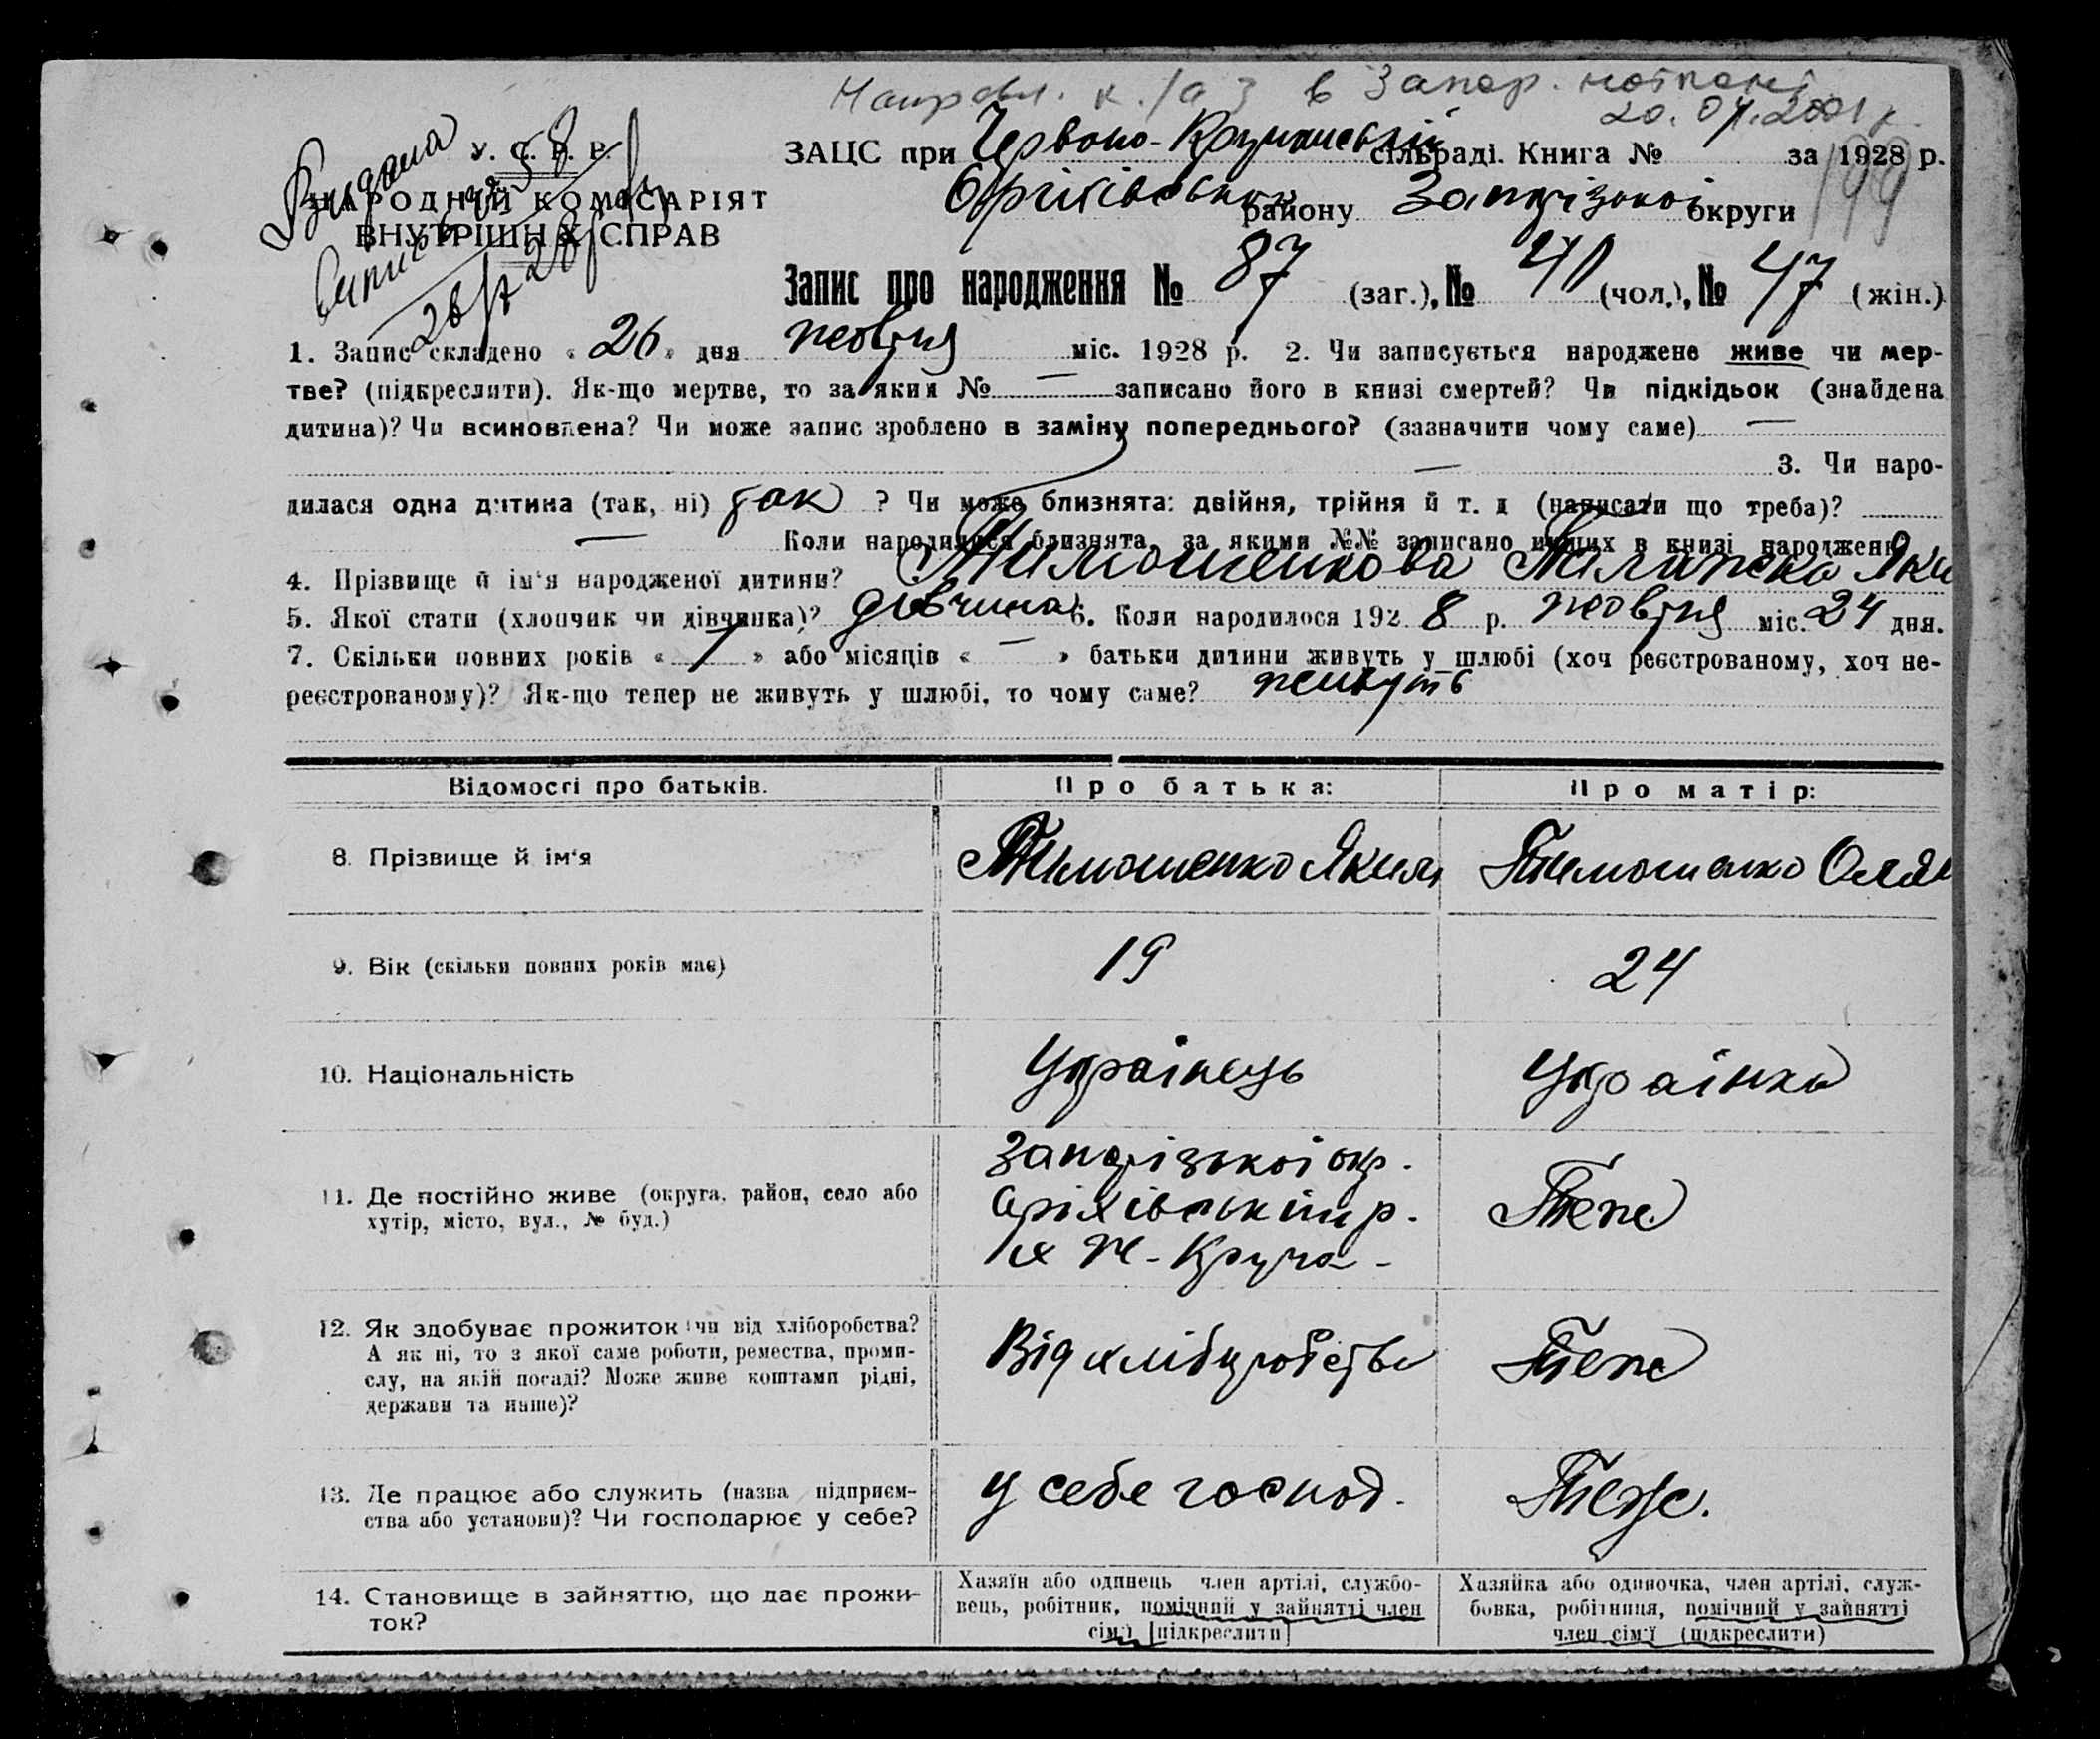 Направл. к. /а з в Запор. нотконт.
20.04.2001 р.
Видана
виписка № 58
26/X 28 р.
У. С. Р. Р.
НАРОДНІЙ КОМІСАРІЯТ
ВНУТРІШНІХ СПРАВ
ЗАЦС при Червоно-Кручанській сільраді. Книга № за 1928 р.
Оріхівський району Запорізької округи
199
Запис про народження № 87 (заг.), № 40 (чол.), № 47 (жін.)
1. Запис складено « 26 » дня жовтня міс. 1928 р. 2. Чи записується народжене живе чи мер-
тве? (підкреслити). Як-що мертве, то за яким № — записано його в книзі смертей? Чи підкідьок (знайдена
дитина)? Чи всиновлена? Чи може запис зроблено в заміну попереднього? (зазначити чому саме) —
— 3. Чи наро-
дилася одна дитина (так, ні) так ? Чи може близнята: двійня, трійня й т. д (написати що треба)?
— Коли народилися близнята, за якими №№ записано инших в книзі народжень
4. Прізвище й ім'я народженої дитини? Тимошенкова Яки
5. Якої стати (хлопчик чи дівчинка)? дівчина 6. Коли народилося 192 8 р. жовтня міс. 24 дня.
7. Скільки повних років « 1 » або місяців « — » батьки дитини живуть у шлюбі (хоч реєстрованому, хоч не-
реєстрованому)? Як-що тепер не живуть у шлюбі, то чому саме? живуть
Відомості про батьків. Про батька: Про матір:
8. Прізвище й ім'я Тимошенко Яким Тимошенко
9. Вік (скільки повних років має) 19 24
10. Національність Українець Українка
11. Де постійно живе (округа, район, село або
хутір, місто, вул., № буд.)
Запорізької окр.
Оріхівський р.
Ж-Круча-
Теж
12. Як здобуває прожиток чи від хліборобства?
А як ні, то з якої саме роботи, ремества, проми-
слу, на якій посаді? Може живе коштами рідні,
держави та инше)?
Від хліборобства
Теж
13. Де працює або служить (назва підприєм-
ства або установи)? Чи господарює у себе?
у себе господ.
Теж.
14. Становище в зайняттю, що дає прожи-
ток?
Хазяїн або одинець член артілі, службо-
вець, робітник, помічний у зайнятті член
сім'ї [підкреслити]
Хазяйка або одиночка, член артілі, служ-
бовка, робітниця, помічний у зайнятті
член сім'ї (підкреслити)